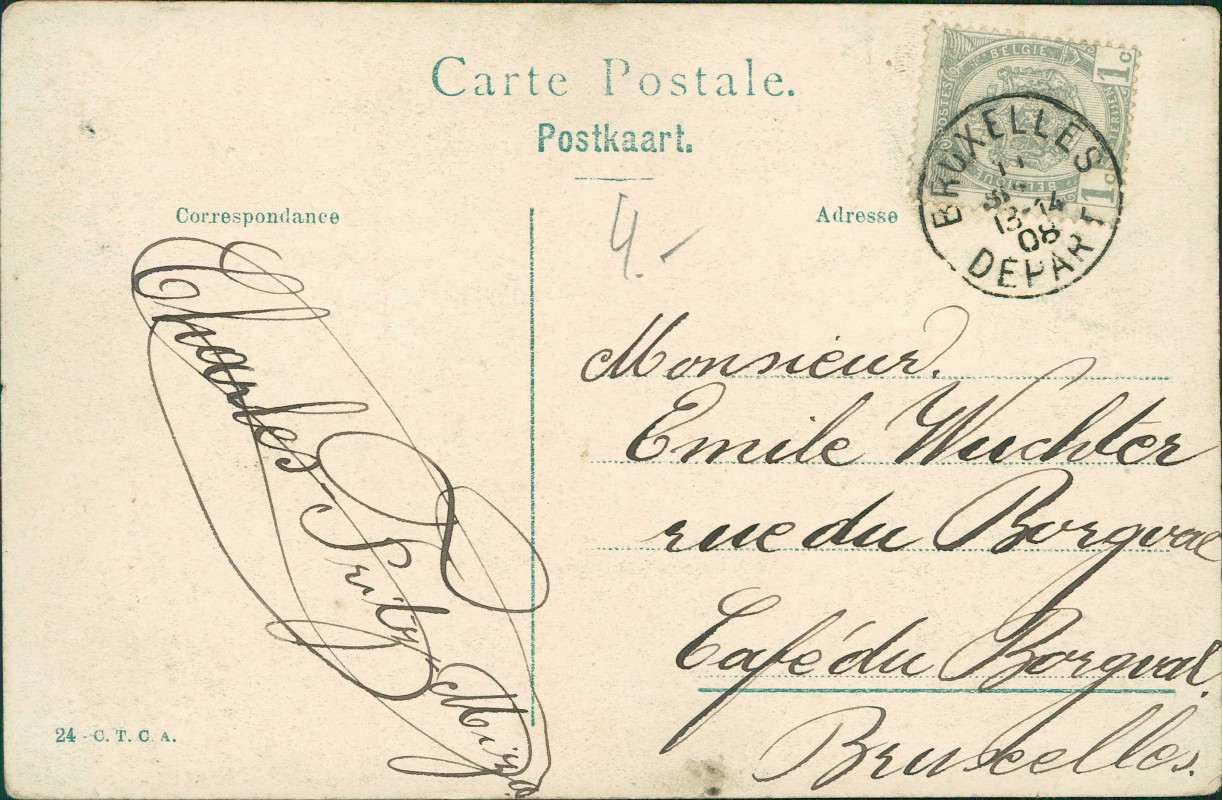 Carte Postale.
Postkaart.
Correspondance
Adresse
4.-
BELGIE
1c
POSTES
BELGIQUE
1c
BRUXELLES
13-14
08
DEPART
Charles Fritz
Monsieur.
Emile Wuchter
rue du Borgval
Café du Borgval.
Bruxelles.
24 - C. T. C. A.